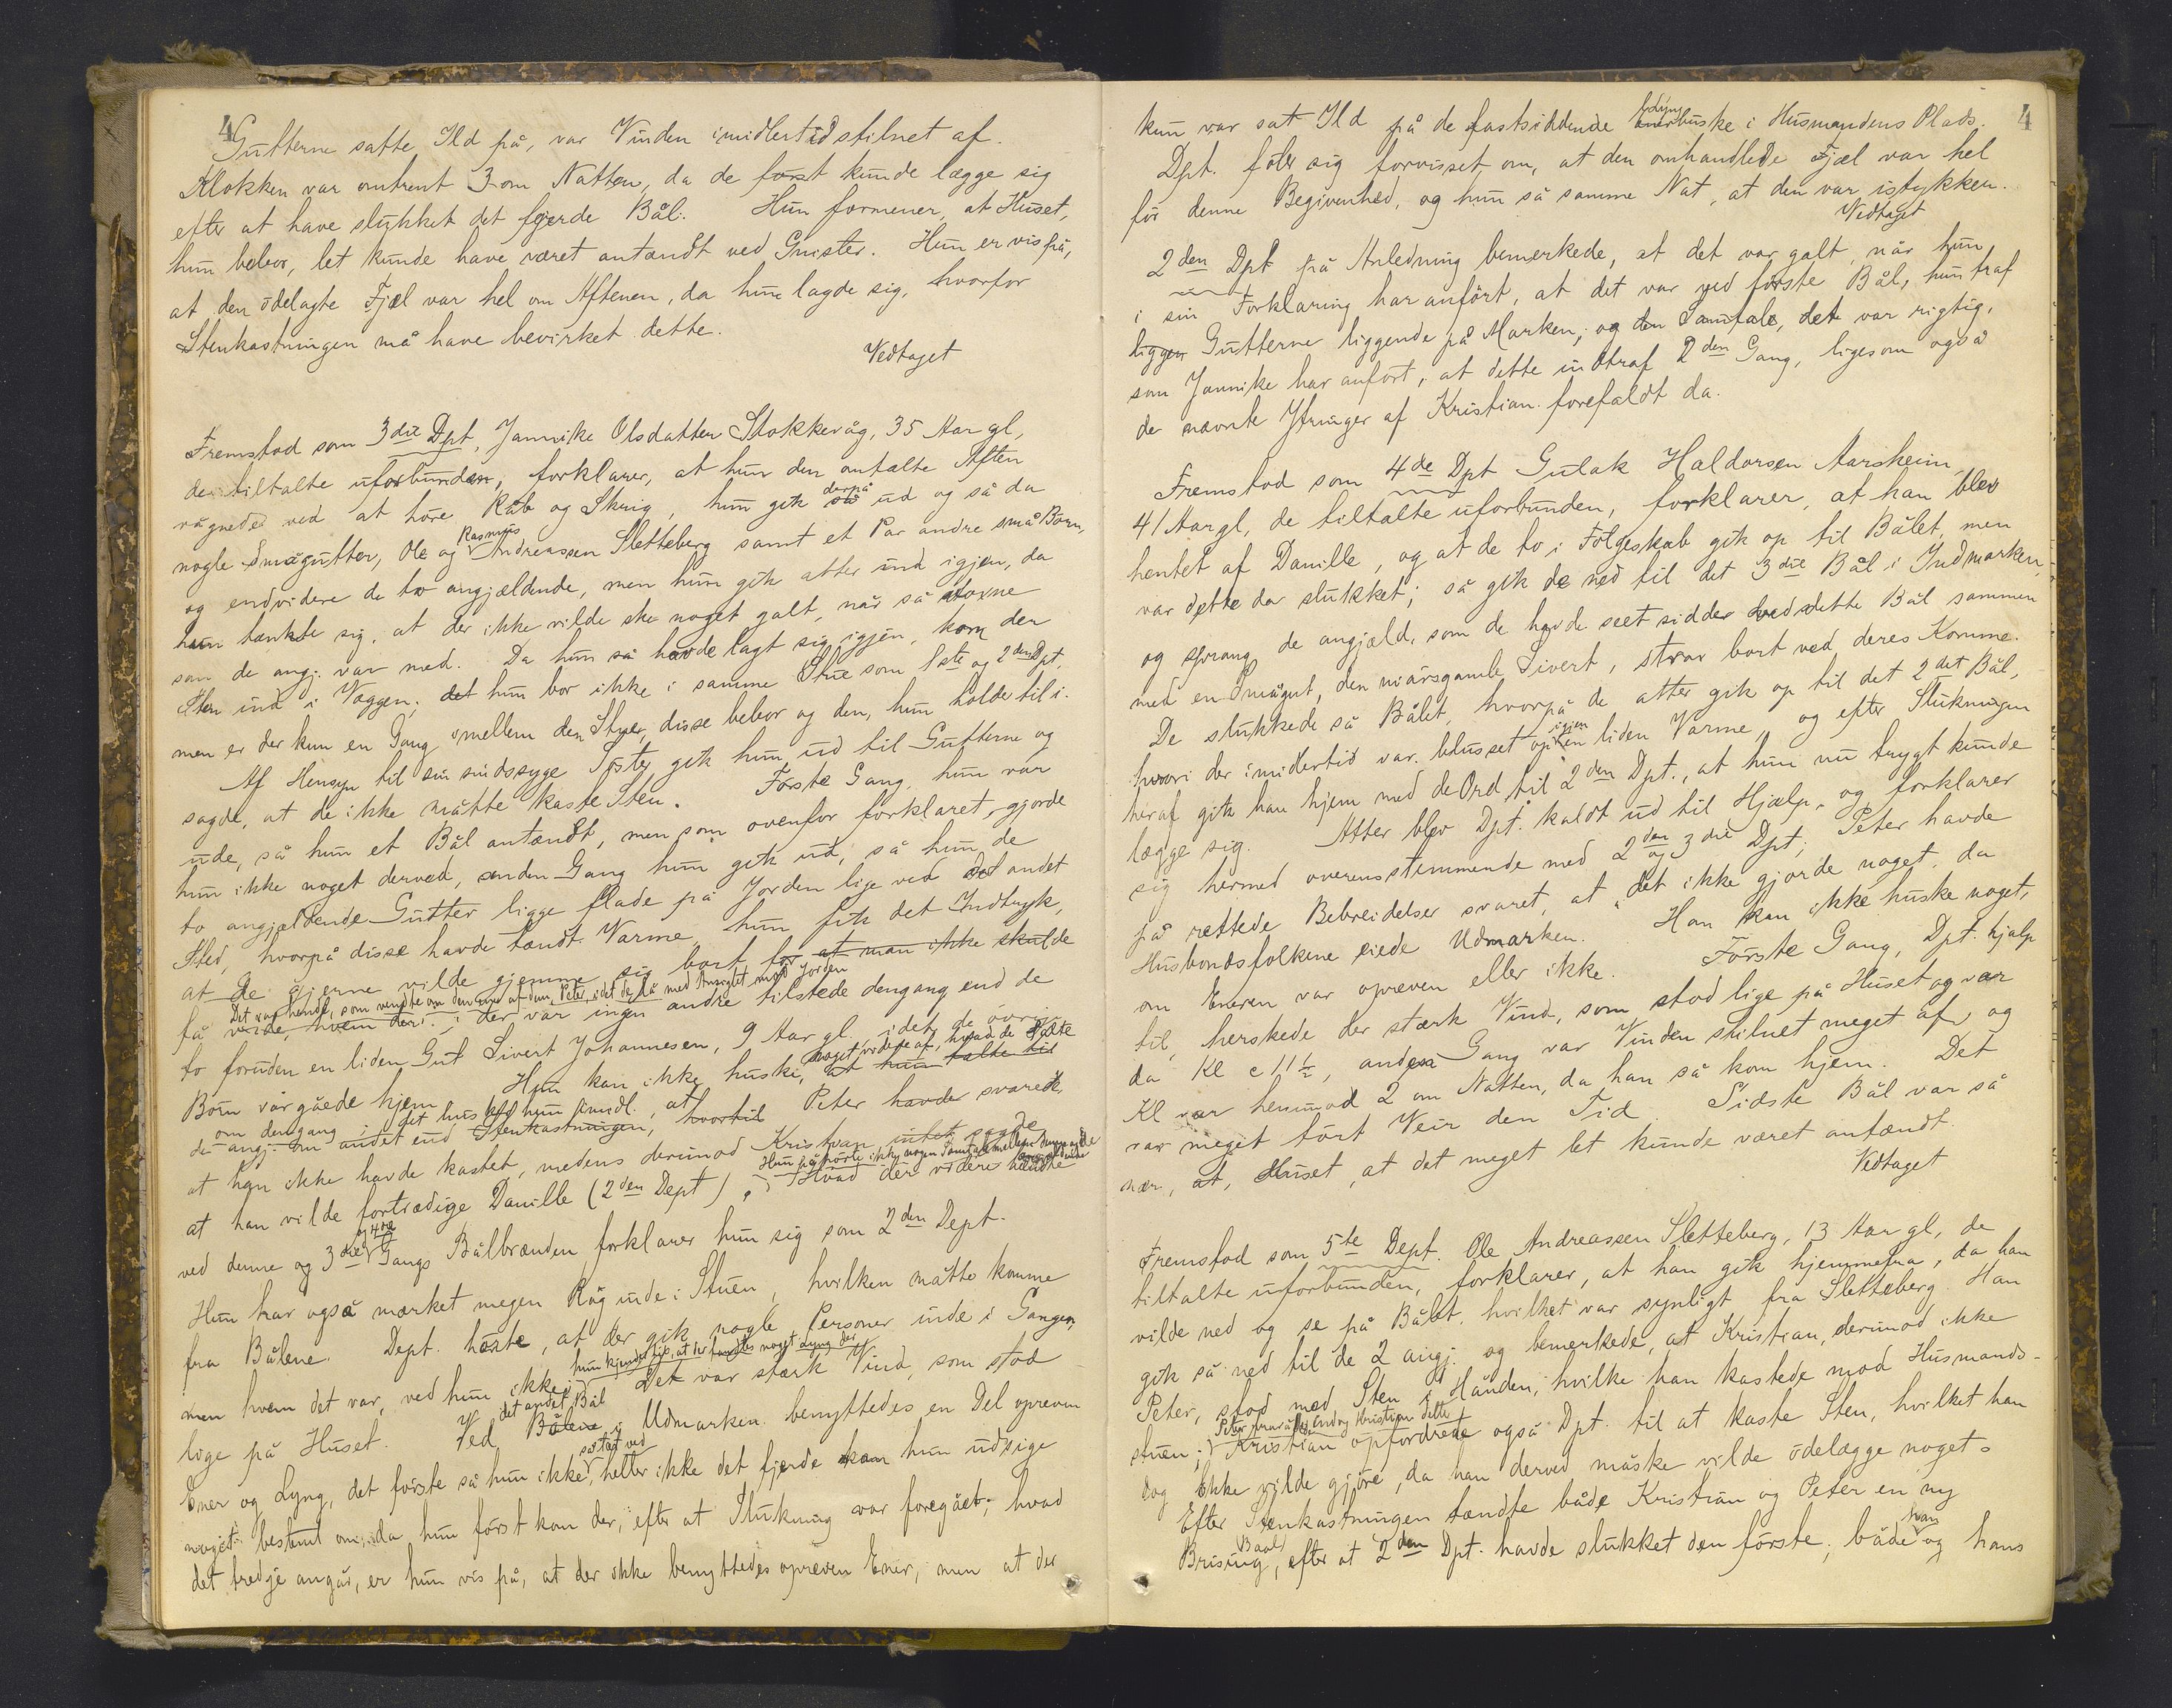 4
Gutterne satte Ild på, var Vinden imidlertid stilnet af.
Klokken var omtrent 3 om Natten, da de først kunde lægge sig
efter at have slukket det fjerde Bål. Hun formener, at Huset,
hun bebor, let kunde have været antændt ved Gnister. Hun er vis på,
at den ödelagte Fjæl var hel om Aftenen, da hun lagde sig, hvorfor
Stenkastningen må have bevirket dette.
Vedtaget
Fremstod som 3die Dpt, Jannike Olsdatter Stokkevåg, 35 Aar gl,
de tiltalte uforbunden, forklarer, at hun den omtalte Aften
vågnede ved at höre Råb og Skrig, hun gik så derpå ud og så da
nogle Smågutter, Ole og Rasmus Andreassen Sletteberg samt et Par andre små Börn,
og endvidere de to angjældende, men hun gik atter ind igjen, da
hun tænkte sig, at der ikke vilde ske noget galt, når så voxne
som de angj. var med. Da hun så havde lagt sig igjen, kom der
Sten ind i Væggen; det hun bor ikke i samme Stue som 1ste og 2den Dpt,
men er der kun en Gang mellem den Stue, disse bebor og den, hun holder til i.
Af Hensyn til sin sindssyge Söster gik hun ud til Gutterne og
sagde, at de ikke måtte kaste Sten. Förste Gang, hun var
ude, så hun et Bål antændt, men som ovenfor forklaret, gjorde
hun ikke noget derved, anden Gang hun gik ud, så hun de
to angjældende Gutter ligge flade på Jorden lige ved det andet
Sted, hvorpå disse havde tændt Varme, hun fik det Indtryk,
at de gjerne vilde gjemme sig bort for at man ikke skulde
Det var hende, som vendte om den ene af dem, Peter, idet de lå med Ansigtet mod Jorden
få vide, hvem der; der var ingen andre tilstede dengang end de
to foruden en liden Gut Sivert Johannesen, 9 Aar gl, idet de övrige
Börn var gåede hjem. Hun kan ikke huske, noget videre af, hvad de talte at hun talte til
om dengang; det huskes hun imidl., at
de angj. om andet end Stenkastningen, hvortil Peter havde svaret,
at han ikke havde kastet, medens derimod Kristian intet sagde
at han vilde fortrædige Danille (2den Dept). Hun påhörte ikke nogen Samtale mellem Hvad der videre hændte
ved denne og 3die og 4de Gangs Bålbrænden forklarer hun sig som 2den Dept.
Hun har også mærket megen Røg inde i Stuen, hvilken måtte komme
fra Bålene. Dept. hørte, at der gik nogle Personer inde i Gangen,
men hvem det var, ved hun ikke; Det var stærk Vind, som stod
lige på Huset. Ved det andet Bål Bålene i Udmarken benyttedes en Del opreven
Ener og Lyng, det förste så hun ikke så tæt ved, heller ikke det fjerde kan hun udsige
noget bestemt om, da hun först kom der, efter at Slukning var foregået; hvad
det tredje angår, er hun vis på, at der ikke benyttedes opreven Ener, men at der
4
kun var sat Ild på de fastsiddende Enerbuske i Husmandens Plads.
Dpt. föler sig forvisset om, at den omhandlede Fjæl var hel
för denne Begivenhed, og hun så samme Nat, at den var istykken.
Vedtaget
2den Dpt på Anledning bemerkede, at det var galt, når hun
i sin Forklaring har anfört, at det var ved förste Bål, hun traf
liggen Gutterne liggende på Marken, og den Samtale, det var rigtig,
som Jannike har anfört, at dette indtraf 2den Gang, ligesom også
de nævnte Ytringer af Kristian forefaldt da.
Fremstod som 4de Dpt Gulak Haldorsen Aarsheim
41 Aar gl, de tiltalte uforbunden, forklarer, at han blev
hentet af Danille, og at de to i Fölgeskab gik op til Bålet, men
var dette da slukket; så gik de ned til det 3die Bål i Indmarken,
og sprang de angjæld, som de havde seet sidde ved dette Bål sammen
med en Smågut, den niårsgamle Sivert, strax bort ved deres Komme.
De slukkede så Bålet, hvorpå de atter gik op til det 2det Bål,
hvori der imidertid var blusset op igjen en liden Varme, og efter Slukningen
heraf gik han hjem med de Ord til 2den Dpt., at hun nu trygt kunde
lægge sig. Atter blev Dpt. kaldt ud til Hjælp, og forklarer
sig hermed overensstemmende med 2den og 3die Dpt; Peter havde
på rettede Bebreidelser svaret, at "det ikke gjorde noget, da
Husbondsfolkene eiede Udmarken. Han kan ikke huske noget,
om Eneren var opreven eller ikke. Förste Gang, Dpt. hjalp
til, herskede der stærk Vind, som stod lige på Huset og var
da Kl c 11½, anden Gang var Vinden stilnet meget af, og
Kl var henimod 2 om Natten, da han så kom hjem. Det
var meget tört Veir den Tid. Sidste Bål var så
nær, at, Huset, at det meget let kunde været antændt.
Vedtaget
Fremstod som 5te Dept. Ole Andreassen Sletteberg, 13 Aar gl, de
tiltalte uforbunden, forklarer, at han gik hjemmefra, da han
vilde ned og se på Bålet, hvilket var synligt fra Sletteberg. Han
gik så ned til de 2 angj. og bemerkede, at Kristian, derimod ikke
Peter, stod med Sten i Hånden, hvilke han kastede mod Husmands-
stuen; Kristian opfordrede også Dpt. til at kaste Sten, hvilket han
dog ikke vilde gjöre, da han derved måske vilde ödelægge noget.
Efter Stenkastningen tændte både Kristian og Peter en ny
Brising Baal, efter at 2den Dpt. havde slukket den förste; både han og hans